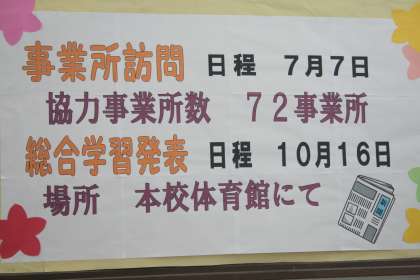 事業所訪問 日程 7月7日
協力事業所数 72事業所
総合学習発表 日程 10月16日
場所 本校体育館にて